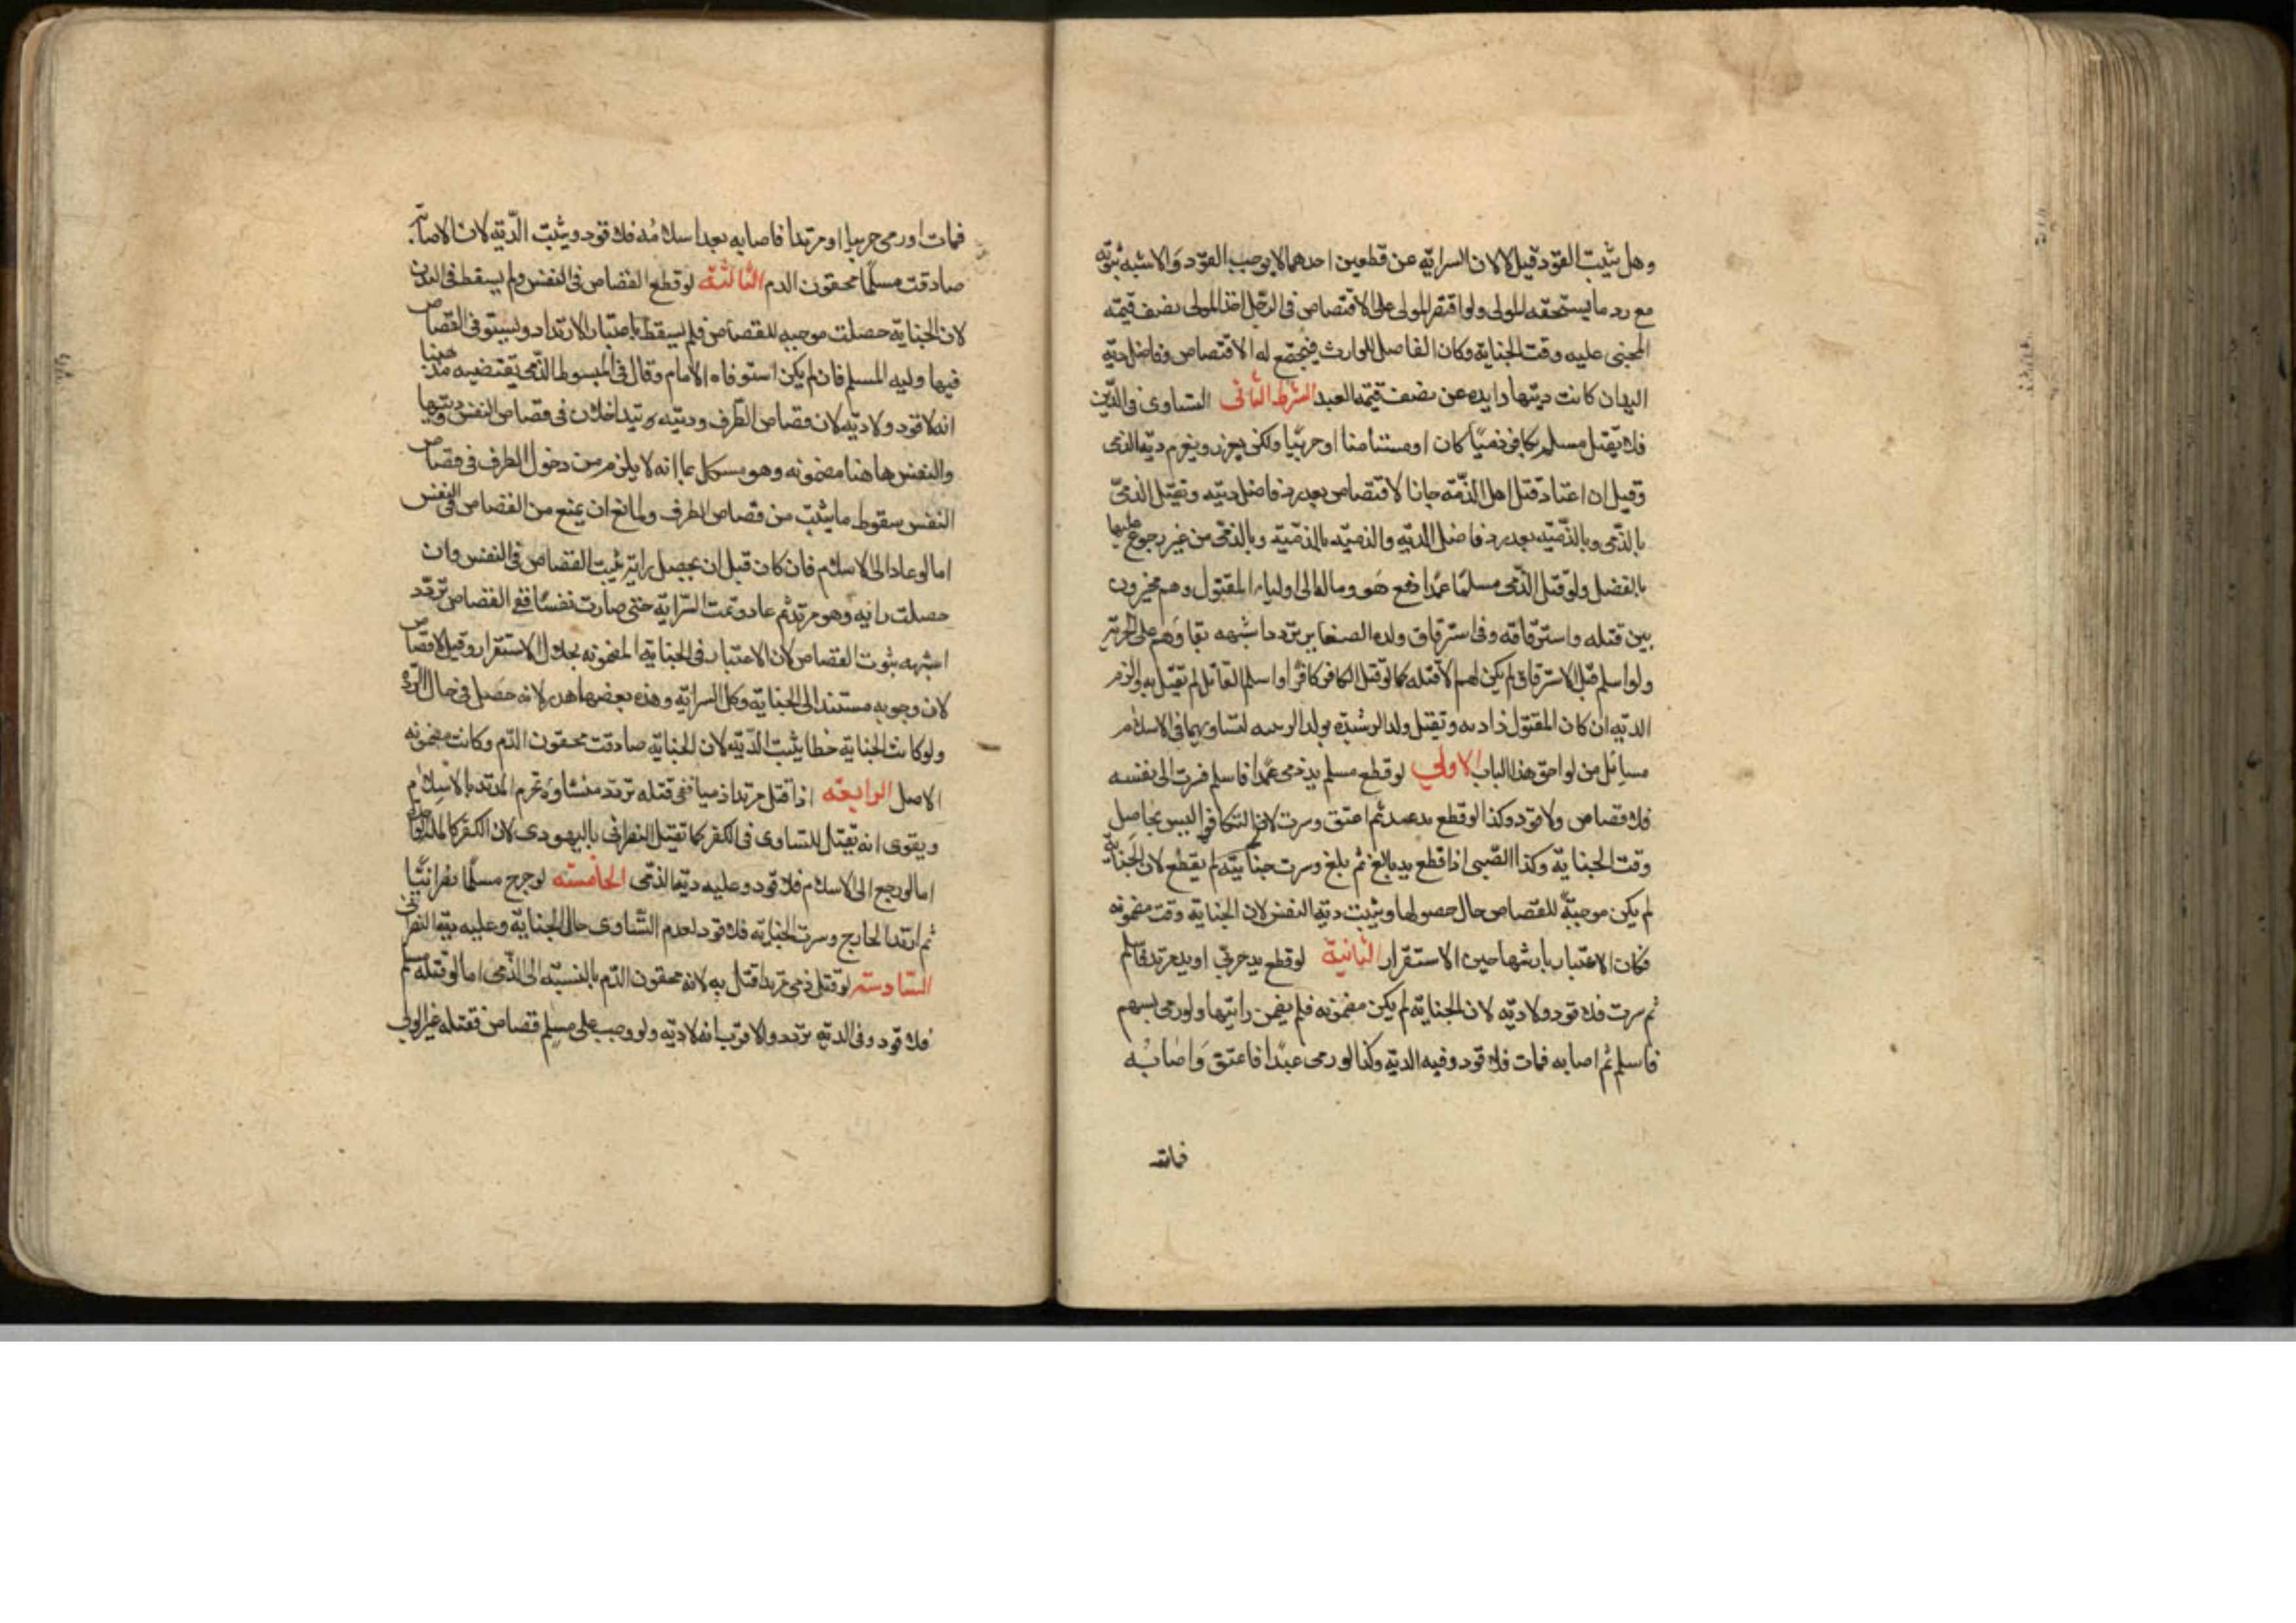 وهل يثبت القود قيل لا لان السراية عن قطعين احدهما لا يوجب القود والاشبه ثبوته
مع رد ما يستحقه المولى ولو اقتصر المولى على الاقتصاص في الرجل اخذ المولى نصف قيمة
المجنى عليه وقت الجناية وكان الفاضل للوارث فيجتمع له الاقتصاص وفاضل دية
اليد ان كانت ديتها زايده عن نصف قيمة العبد الشرط الثاني التساوى فى الدين
فلا يقتل مسلم بكافر ذميا كان او مستامنا او حربيا ولكن يعزر ويغرم دية الذمى
وقيل ان اعتاد قتل اهل الذمة جاز الاقتصاص بعد رد فاضل ديته ويقتل الذمى
بالذمى وبالذمية بعد رد فاضل الدية والذمية بالذمية وبالذمى من غير رجوع عليها
بالفضل ولو قتل الذمى مسلما عمدا دفع هو وماله الى اولياء المقتول وهم مخيرون
بين قتله واسترقاقه وفى استرقاق ولده الصغار تردد اشبهه بقاوهم على الحرية
ولو اسلم قبل الاسترقاق لم يكن لهم الا قتله كما لو قتل الكافر كافرا واسلم القاتل لم يقتل به والزم
الدية ان كان المقتول ذا دية ويقتل ولد الرشدة بولد الزنية لتساويهما فى الاسلام
مسائل من لواحق هذا الباب الاولى لو قطع مسلم يد ذمى عمدا فاسلم فسرت الى نفسه
فلا قصاص ولا قود وكذا لو قطع يد عبد ثم اعتق وسرت لان التكافو ليس بحاصل
وقت الجناية وكذا الصبى اذا قطع يد بالغ ثم بلغ وسرت جنايته لم يقطع لان الجناية
لم يكن موجبة للقصاص حال حصولها ويثبت دية النفس لان الجناية وقعت مضمونه
فكان الاعتبار بارشها حين الاستقرار الثانية لو قطع يد حربي او يد مرتد فاسلم
ثم سرت فلا قود ولا دية لان الجناية لم يكن مضمونه فلم يضمن سرايتها ولو رمى بسهم
فاسلم ثم اصابه فمات فلا قود وفيه الدية وكذا لو رمى عبدا فاعتق واصابه
فمات
فمات او رمى حربيا او مرتدا فاصابه بعد اسلامه فلا قود ويثبت الدية لان الاصابة
صادفت مسلما محقون الدم الثالثة لو قطع القصاص فى النفس ولم يسقط فى اليد
لان الجناية حصلت موجبه للقصاص فلم يسقط باعتبار الارتداد ويستوفى القصاص
فيها وليه المسلم فان لم يكن استوفاه الامام وقال فى المبسوط الذى يقتضيه مذهبنا
انه لا قود ولا دية لان قصاص الطرف وديته يتداخلان فى قصاص النفس وديتها
والنفس هاهنا مضمونه وهو مشكل بما انه لا يلزم من دخول الطرف فى قصاص
النفس سقوط ما يثبت من قصاص الطرف ولمانع ان يمنع من القصاص فى النفس
اما لو عاد الى الاسلام فان كان قبل ان يحصل سراية ثبت القصاص فى النفس وان
حصلت سراية وهو مرتد ثم عاد وتمت السراية حتى صارت نفسا ففى القصاص تردد
اشبهه ثبوت القصاص لان الاعتبار فى الجناية المضمونه بحال الاستقرار وقيل لا قصاص
لان وجوبه مستند الى الجناية وكل السراية وهذه بعضها هدر لانه حصل فى حال الردة
ولو كانت الجناية خطا يثبت الدية لان الجناية صادفت محقون الدم وكانت مضمونه
الاصل الرابعة اذا قتل مرتد ذميا ففى قتله تردد منشاوه تحرم المرتد بالاسلام
ويقوى انه يقتل للتساوى فى الكفر كما يقتل النصرانى باليهودى لان الكفر كالملة الواحدة
اما لو رجع الى الاسلام فلا قود وعليه دية الذمى الخامسة لو جرح مسلما نصرانيا
ثم ارتد الجارح وسرت الجناية فلا قود لعدم التساوى حال الجناية وعليه دية النصرانى
السادسة لو قتل ذمى مرتدا قتل به لانه محقون الدم بالنسبة الى الذمى اما لو قتله مسلم
فلا قود وفى الدية تردد والاقرب انه لا دية ولو وجب على مسلم قصاص فقتله غير الولى